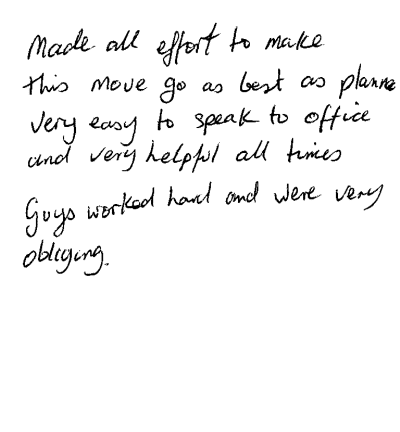 Made all effort to make
this move go as best as planne
very easy to speak to office
and very helpful all times
Guys worked hard and were very
obliging.